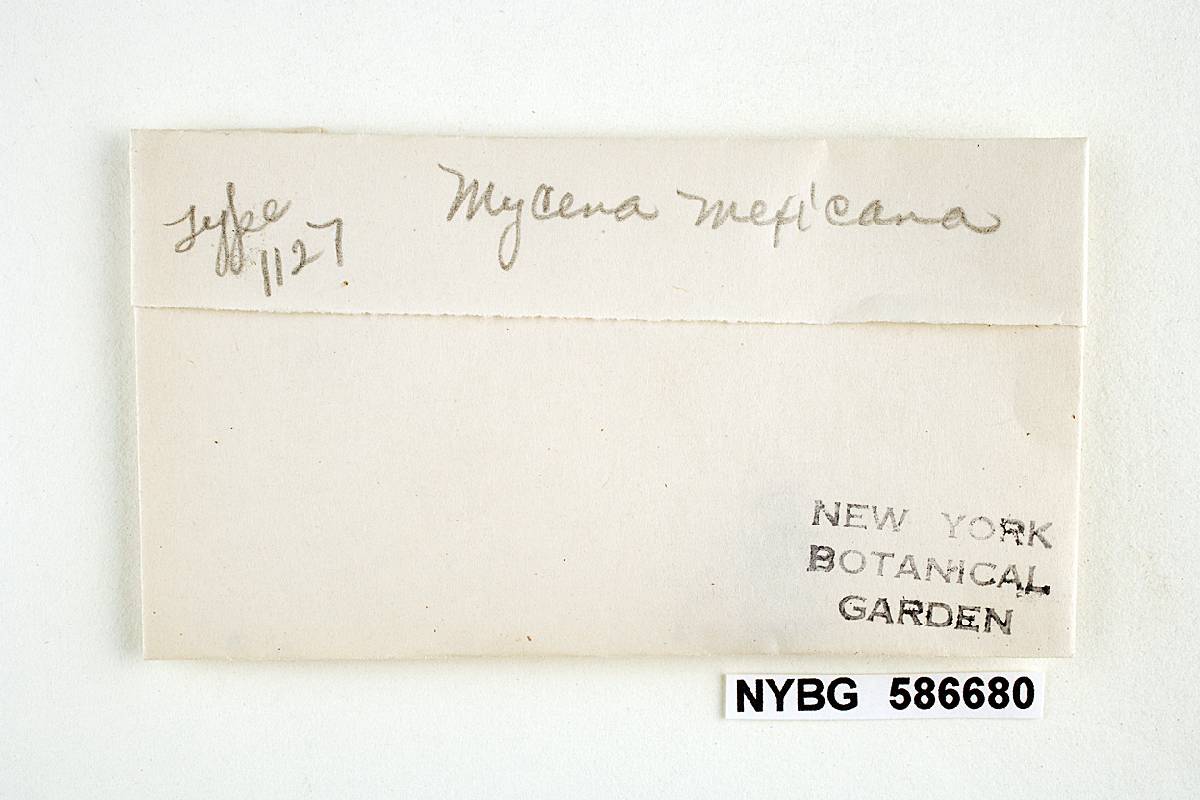 Type
1127
Mycena mexicana
NEW YORK
BOTANICAL
GARDEN
NYBG 586680